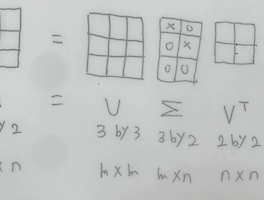 = X O
O X
O O
= U Σ Vᵀ
y 2 3 by 3 3 by 2 2 by 2
x n m x m m x n n x n